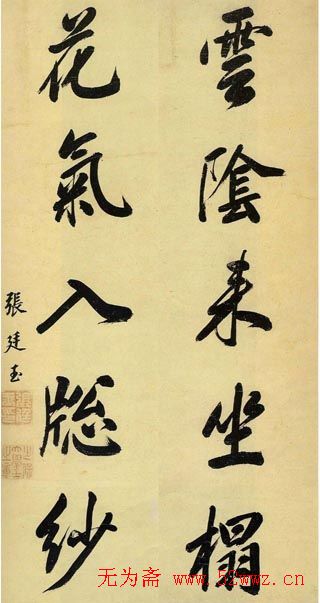 雲陰來坐榻
花氣入牎紗
張廷玉
无为斋 www.52wwz.cn